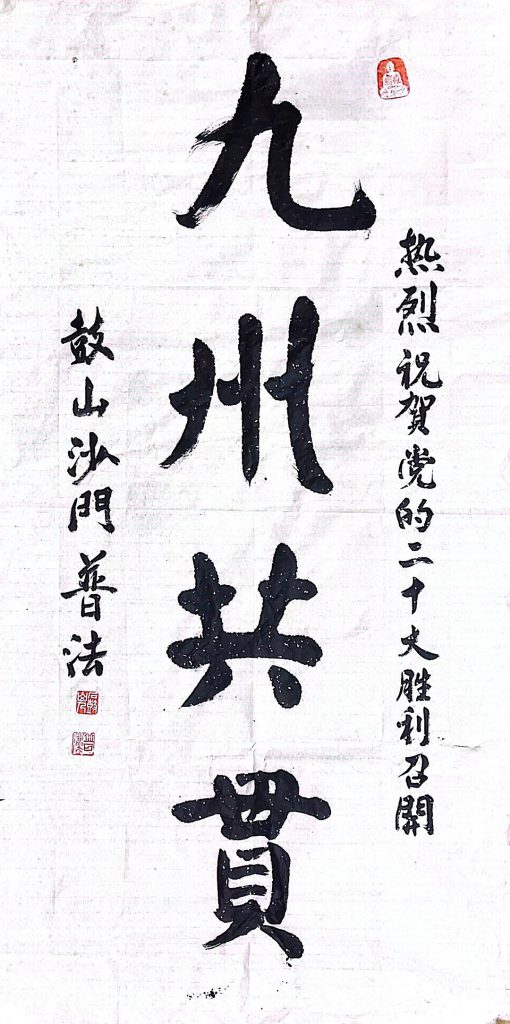 热烈祝贺党的二十大胜利召開
九州共貫
鼓山沙門普法